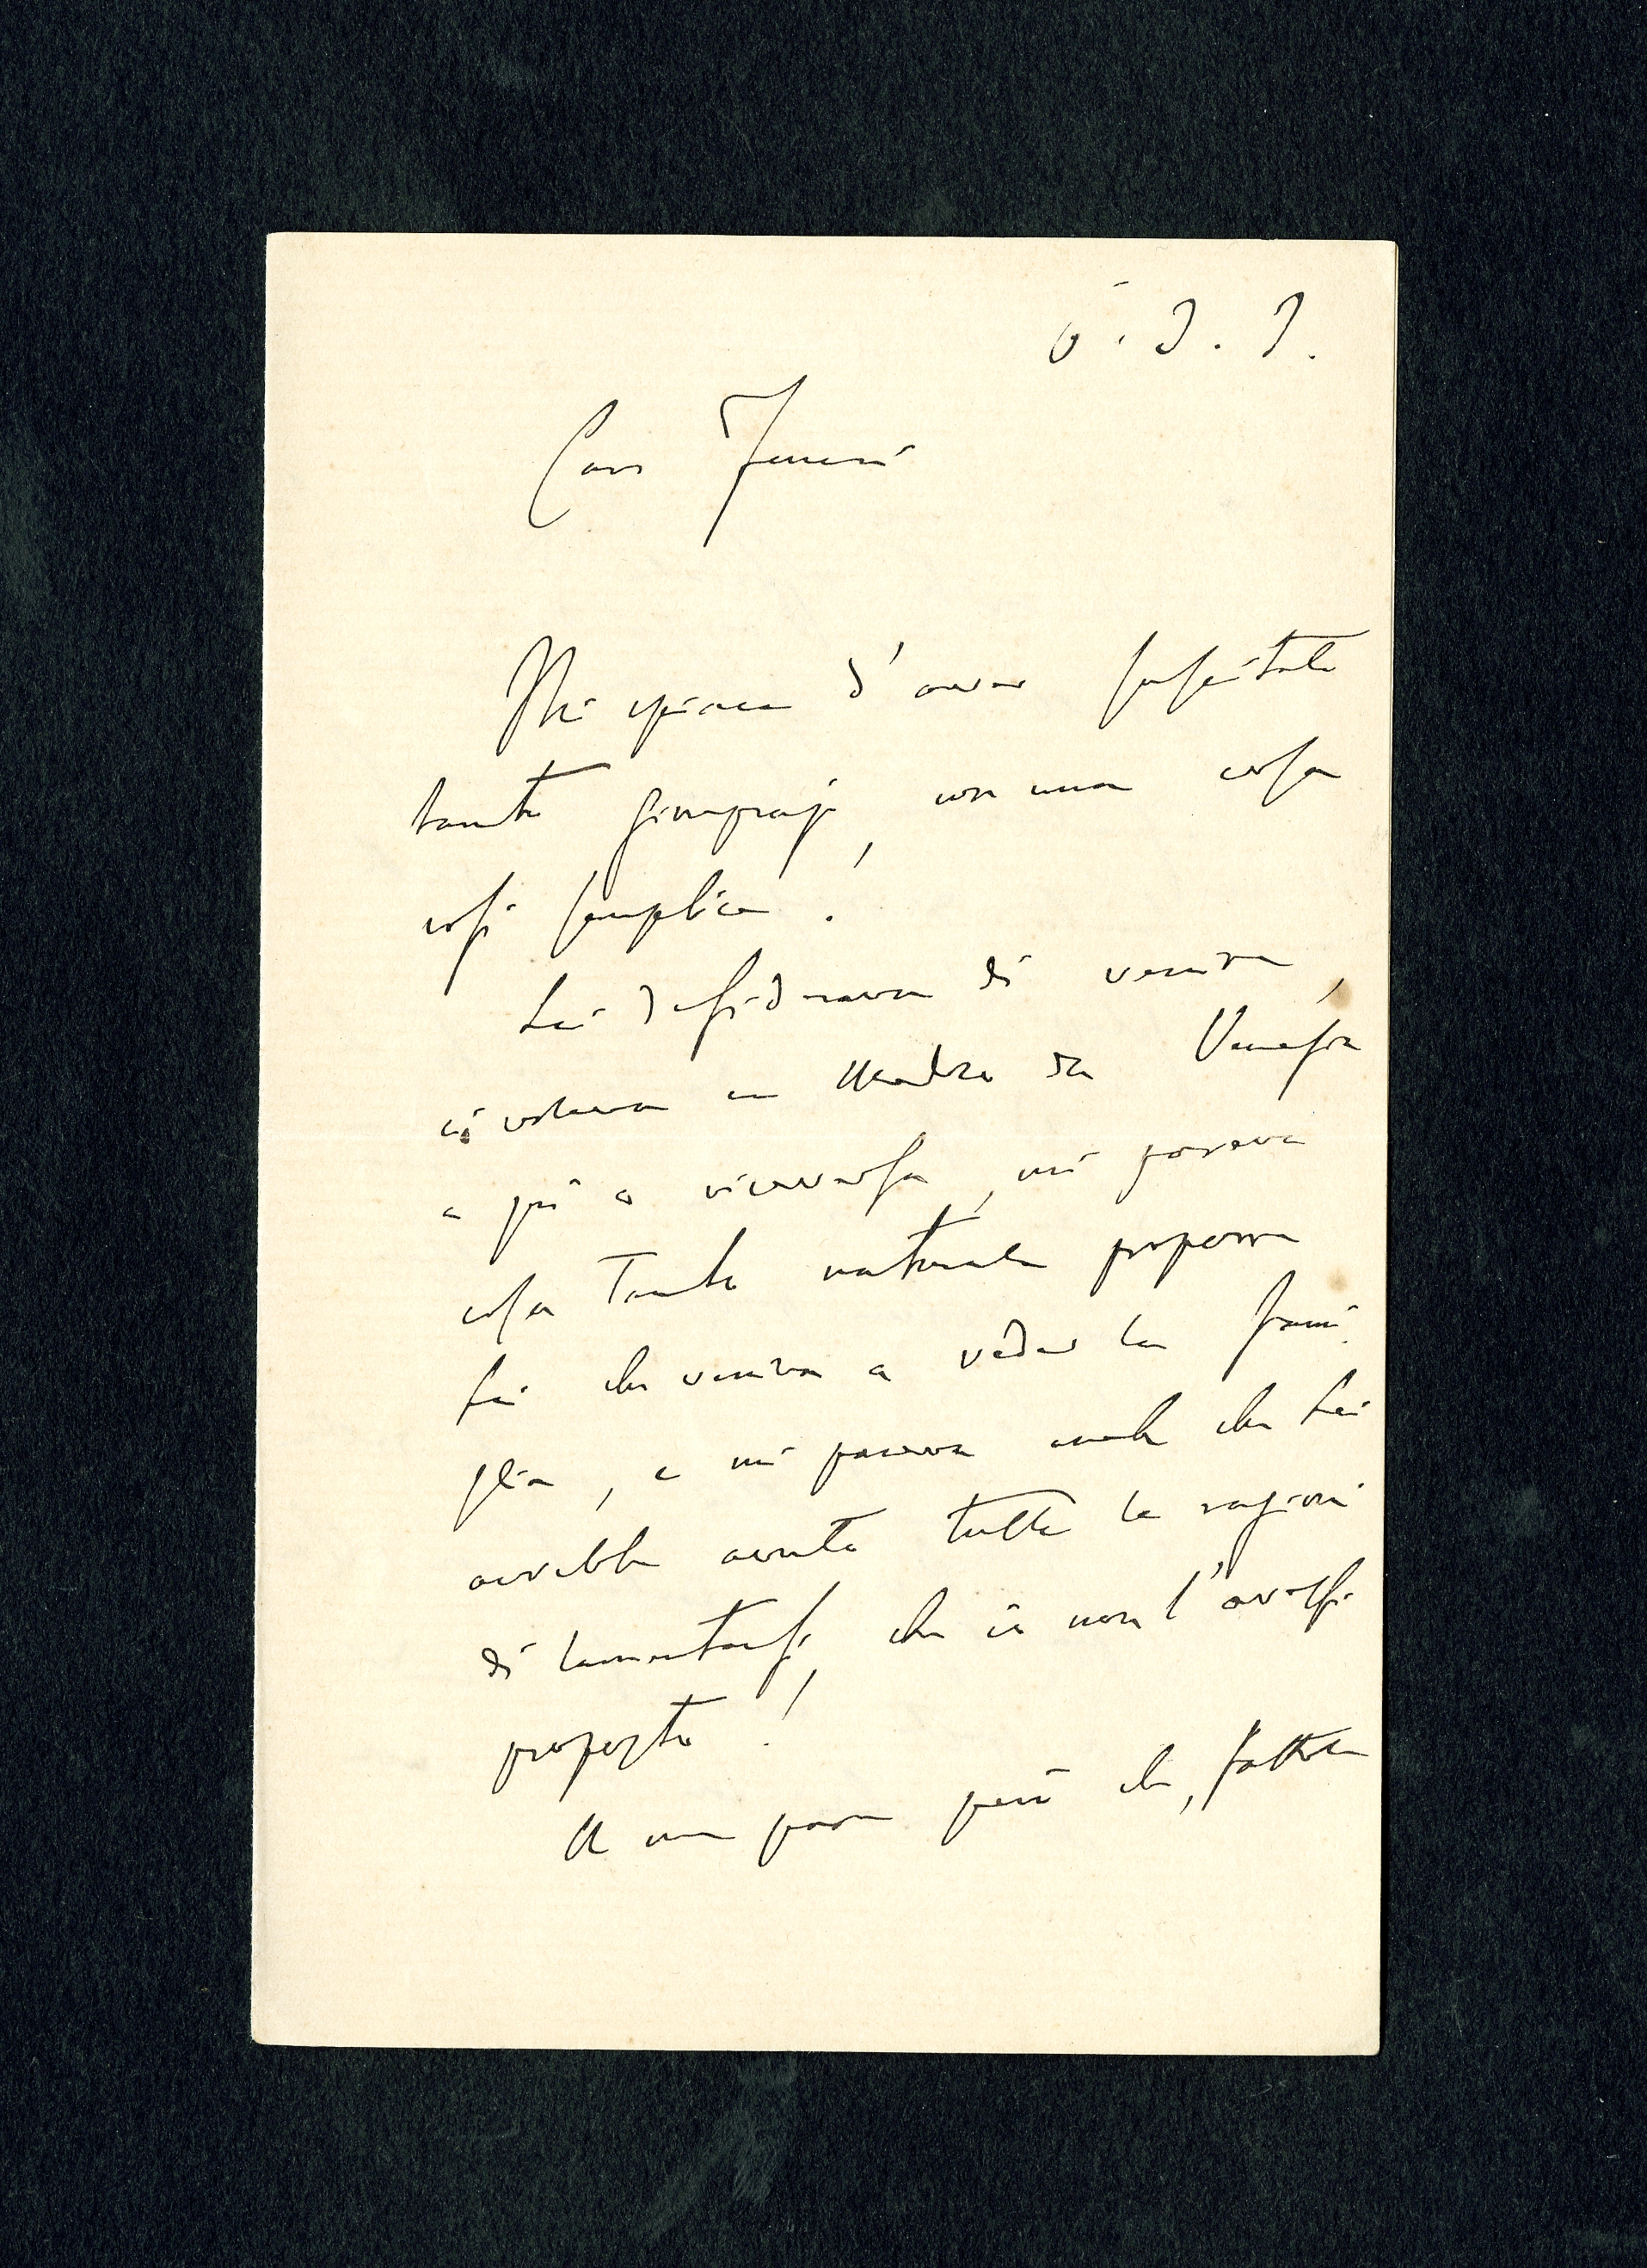 Caro
Mi spiace d'aver suscitate
tante, con una cosa
così semplice.
Lei desiderava di venire,
ci voleva un Medico da Venezia
a qui o viceversa, mi pareva
cosa tanto naturale proporre
Lei che veniva a veder la fami
glia, e mi pareva anche che Lei
avrebbe avuto tutte le ragioni
di lamentarsi, che io non l'avessi
proposto!
A me pare però che, fattole